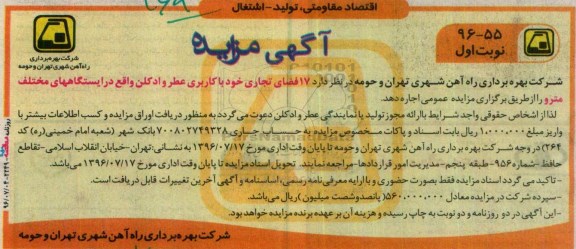 اقتصاد مقاومتی، تولید - اشتغال
۹۶-۵۵
نوبت اول
آگهی مزایده
شرکت بهره برداری
راه آهن شهری تهران و حومه
شرکت بهره برداری راه آهن شهری تهران و حومه در نظر دارد ۱۷ فضای تجاری خود با کاربری عطر و ادکلن واقع در ایستگاههای مختلف
مترو را از طریق برگزاری مزایده عمومی اجاره دهد.
لذا از اشخاص حقوقی واجد شرایط با ارائه مجوز تولید یا نمایندگی عطر و ادکلن دعوت می گردد به منظور دریافت اوراق مزایده و کسب اطلاعات بیشتر با
واریز مبلغ ۱،۰۰۰،۰۰۰ ریال بابت اسناد و پاکات مخصوص مزایده به حساب جاری ۷۰۰۸۰۲۷۴۹۳۲۸ بانک شهر (شعبه امام خمینی(ره) کد
۲۶۴) در وجه شرکت بهره برداری راه آهن شهری تهران و حومه تا پایان وقت اداری مورخ ۱۳۹۶/۰۷/۱۷ به نشانی: تهران- خیابان انقلاب اسلامی- تقاطع
حافظ- شماره ۹۵۶- طبقه پنجم- مدیریت امور قراردادها- مراجعه نمایند. تحویل اسناد مزایده تا پایان وقت اداری مورخ ۱۳۹۶/۰۷/۱۷ می باشد.
- تاکید می گردد اسناد مزایده فقط بصورت حضوری و با ارایه معرفی نامه رسمی، اساسنامه و آگهی آخرین تغییرات قابل دریافت است.
- سپرده شرکت در مزایده معادل ۵۶۰،۰۰۰،۰۰۰ (پانصد و شصت میلیون) ریال می باشد.
- این آگهی در دو روزنامه و دو نوبت به چاپ رسیده و هزینه آن بر عهده برنده مزایده خواهد بود.
شرکت بهره برداری راه آهن شهری تهران و حومه